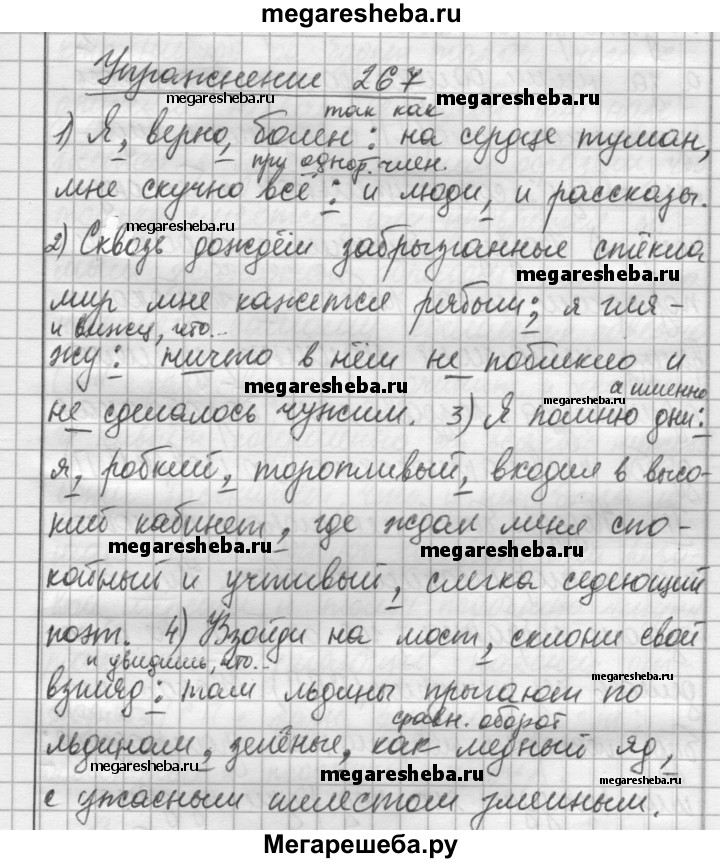 megaresheba.ru
Упражнение 267
megaresheba.ru megaresheba.ru
так как
1) Я, верно, болен: на сердце туман,
при однор. член.
мне скучно всё: и люди, и рассказы.
megaresheba.ru
2) Сквозь дождём забрызганные стёкла
megaresheba.ru
мир мне кажется рябым; я гля-
и вижу, что...
жу: ничто в нём не поблекло и
megaresheba.ru а именно
megaresheba.ru
не сделалось чужим. 3) Я помню дни:
я, робкий, торопливый, входил в высо-
кий кабинет, где ждал меня спо-
megaresheba.ru megaresheba.ru
койный и учтивый, слегка седеющий
поэт. 4) Взойди на мост, склони свой
и увидишь, что...
megaresheba.ru
взгляд: там льдины прыгают по
сравн. оборот
льдинам, зелёные, как медный яд,
megaresheba.ru megaresheba.ru megaresheba.ru
с ужасным шелестом змеиным.
Мегарешеба.ру